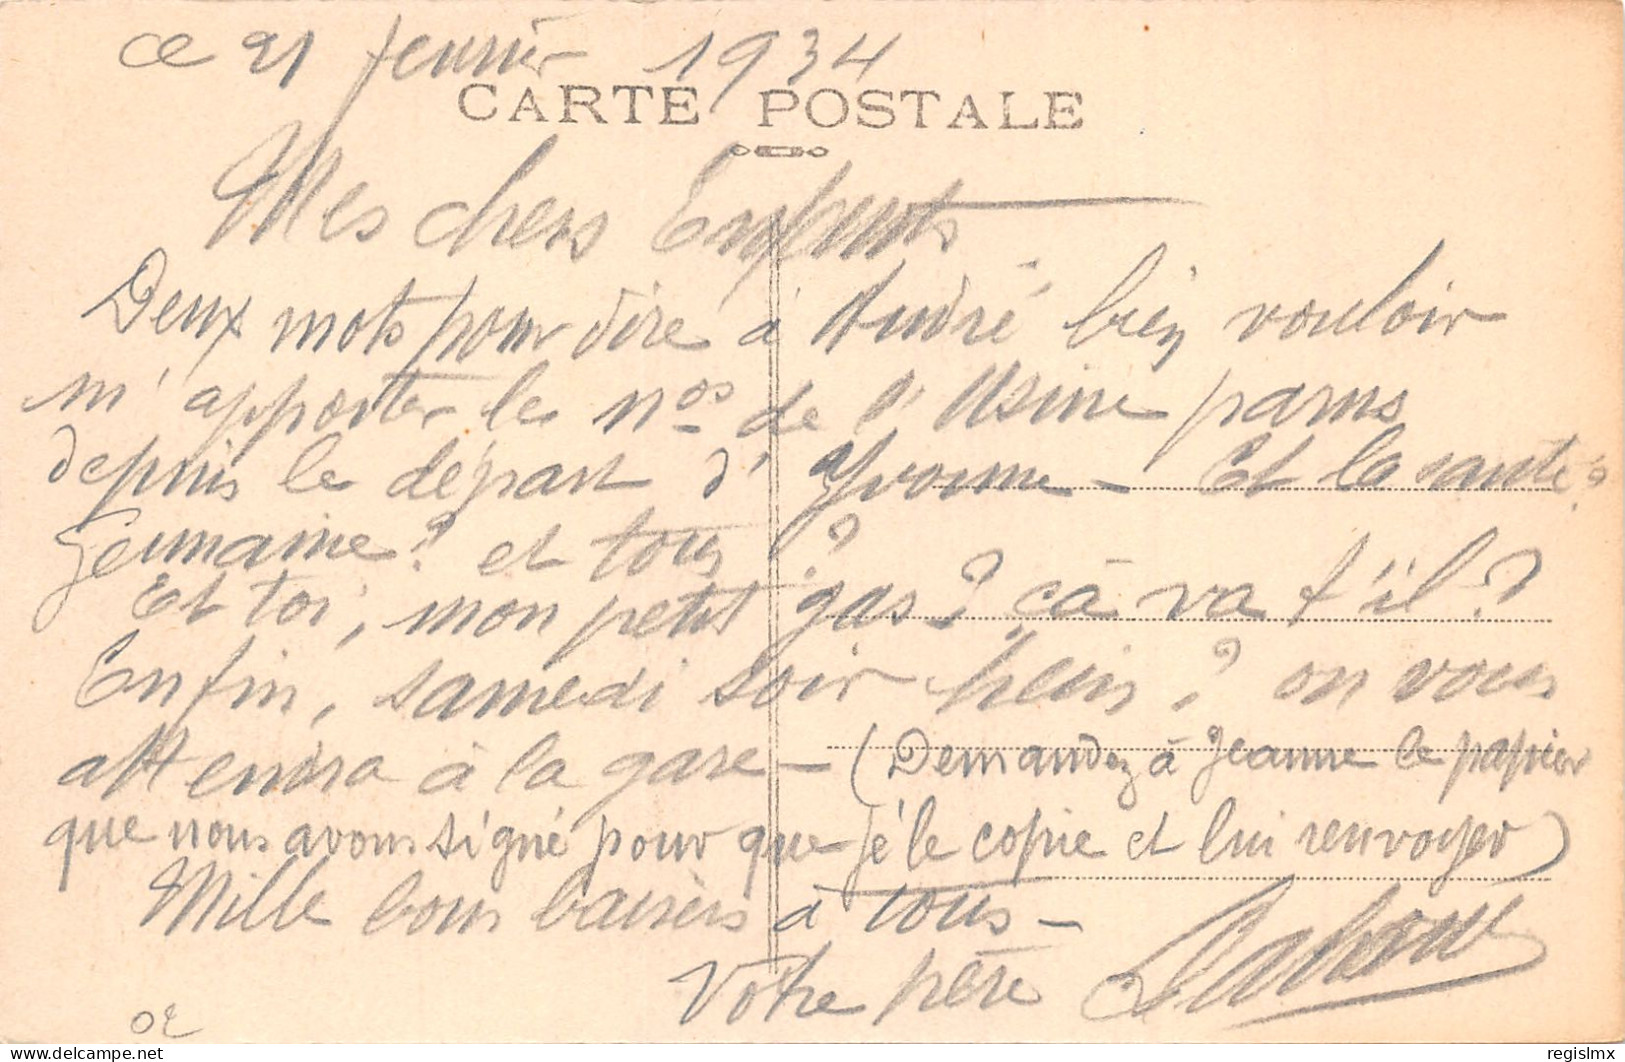 ce 21 fevrier 1934
CARTE POSTALE
Mes chers Enfants
Deux mots pour dire à André bien vouloir
m'apporter le nos de l'Usine parus
depuis le départ d'Yvonne - Et la santé?
Germaine? et tous?
Et toi, mon petit gas? câ va t'il?
Enfin, samedi soir hein? on vous
attendra à la gare - (Demandez à Jeanne le papier
que nous avons signé pour que jé le copie et lui renvoyer)
Mille bons baisers à tous -
Votre père
OE
delcampe.net
regislmx